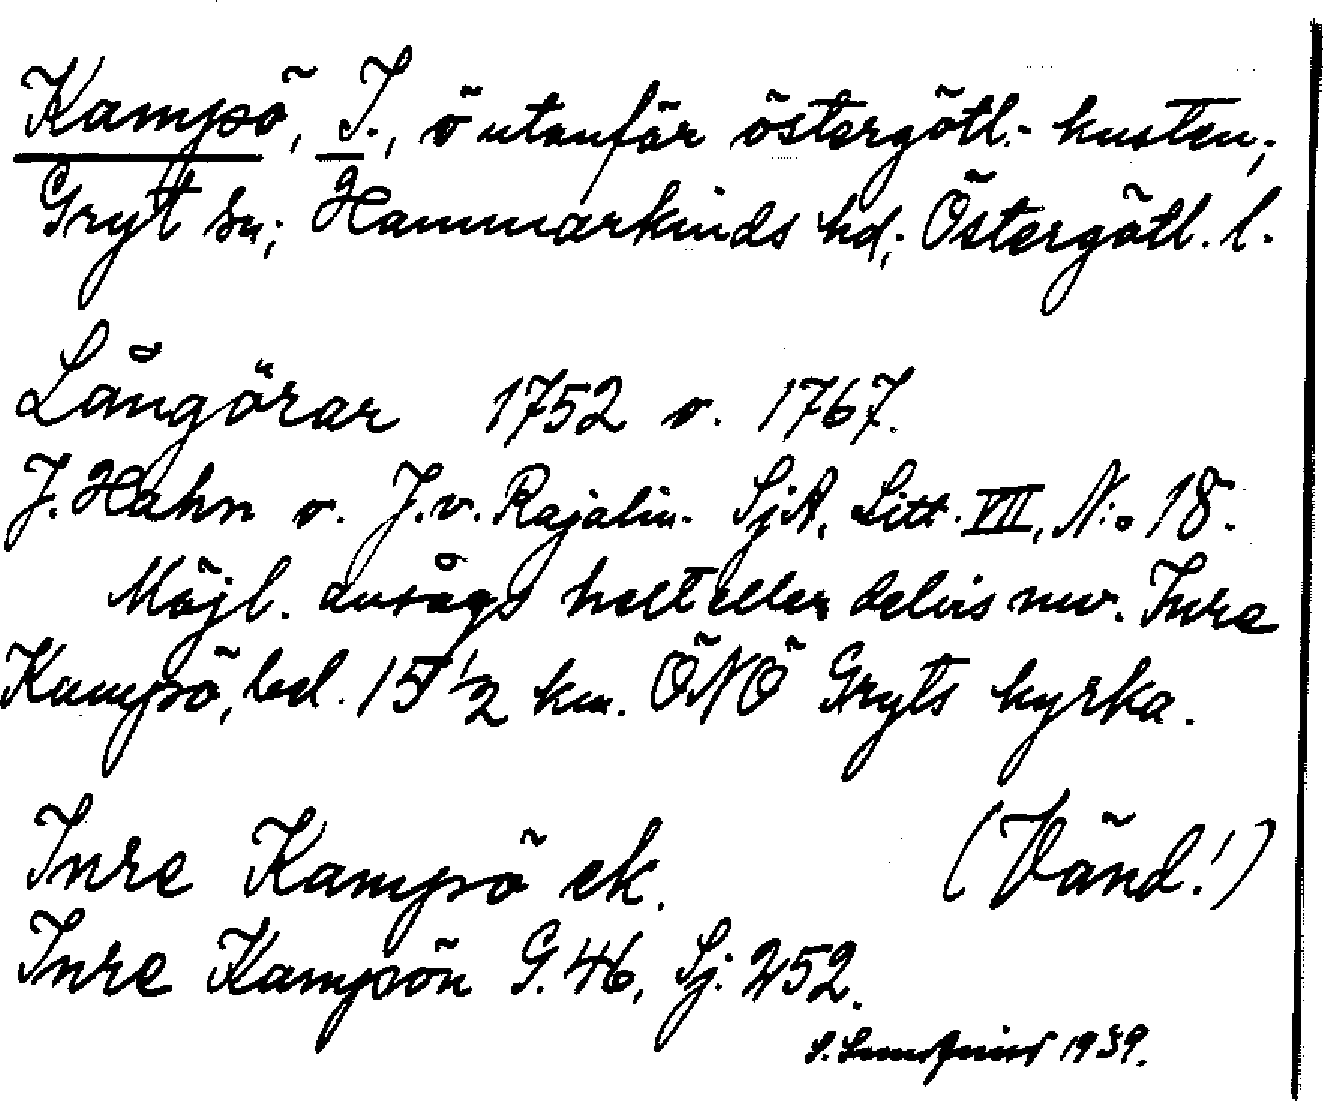 Kampö, I., ö utanför östergötl. kusten;
Gryt sn; Hammarkinds hd; Östergötl. l.
Långörar 1752 o. 1767.
J. Hahn o. J. v. Rajalin. SjA, Litt. VII, N:o 18.
Möjl. avsågs helt eller delvis nuv. Inre
Kampö, bel. 15 1/2 km. ÖNÖ Gryts kyrka.
Inre Kampö ek. (Vänd!)
Inre Kampön G. 46, Sj. 252.
1939.